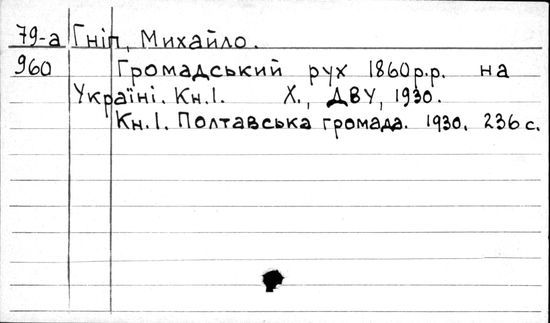 79-а Гніп, Михайло.
960 Громадський рух 1860 р.р. на
Україні. Кн.І. Х., ДВУ, 1930.
Кн.І. Полтавська громада. 1930. 236 с.